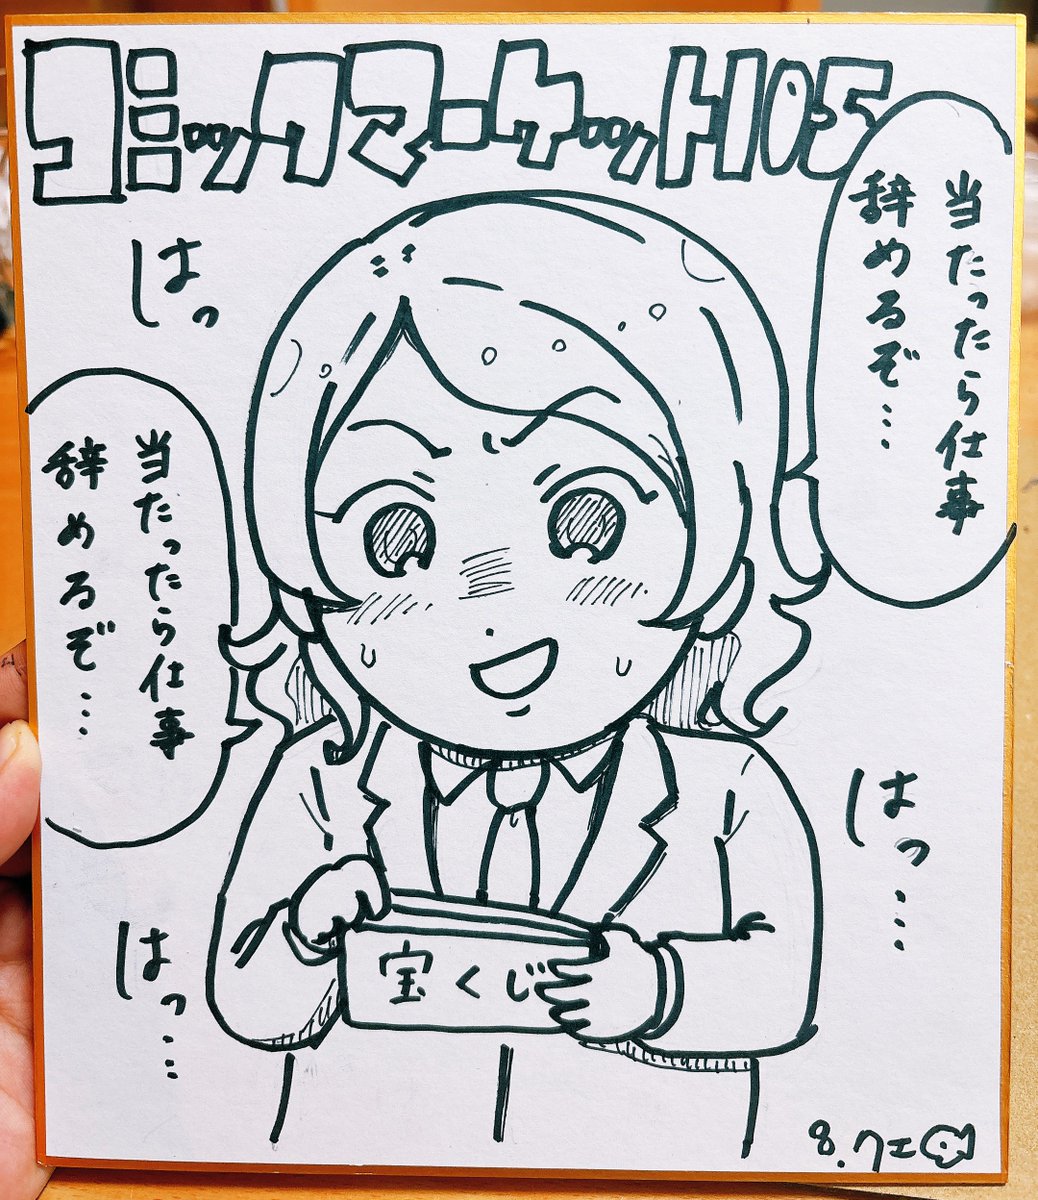 コミックマーケット105
当たったら仕事
辞めるぞ…
はっ
当たったら仕事
辞めるぞ…
はっ…
はっ…
宝くじ
8.クエ